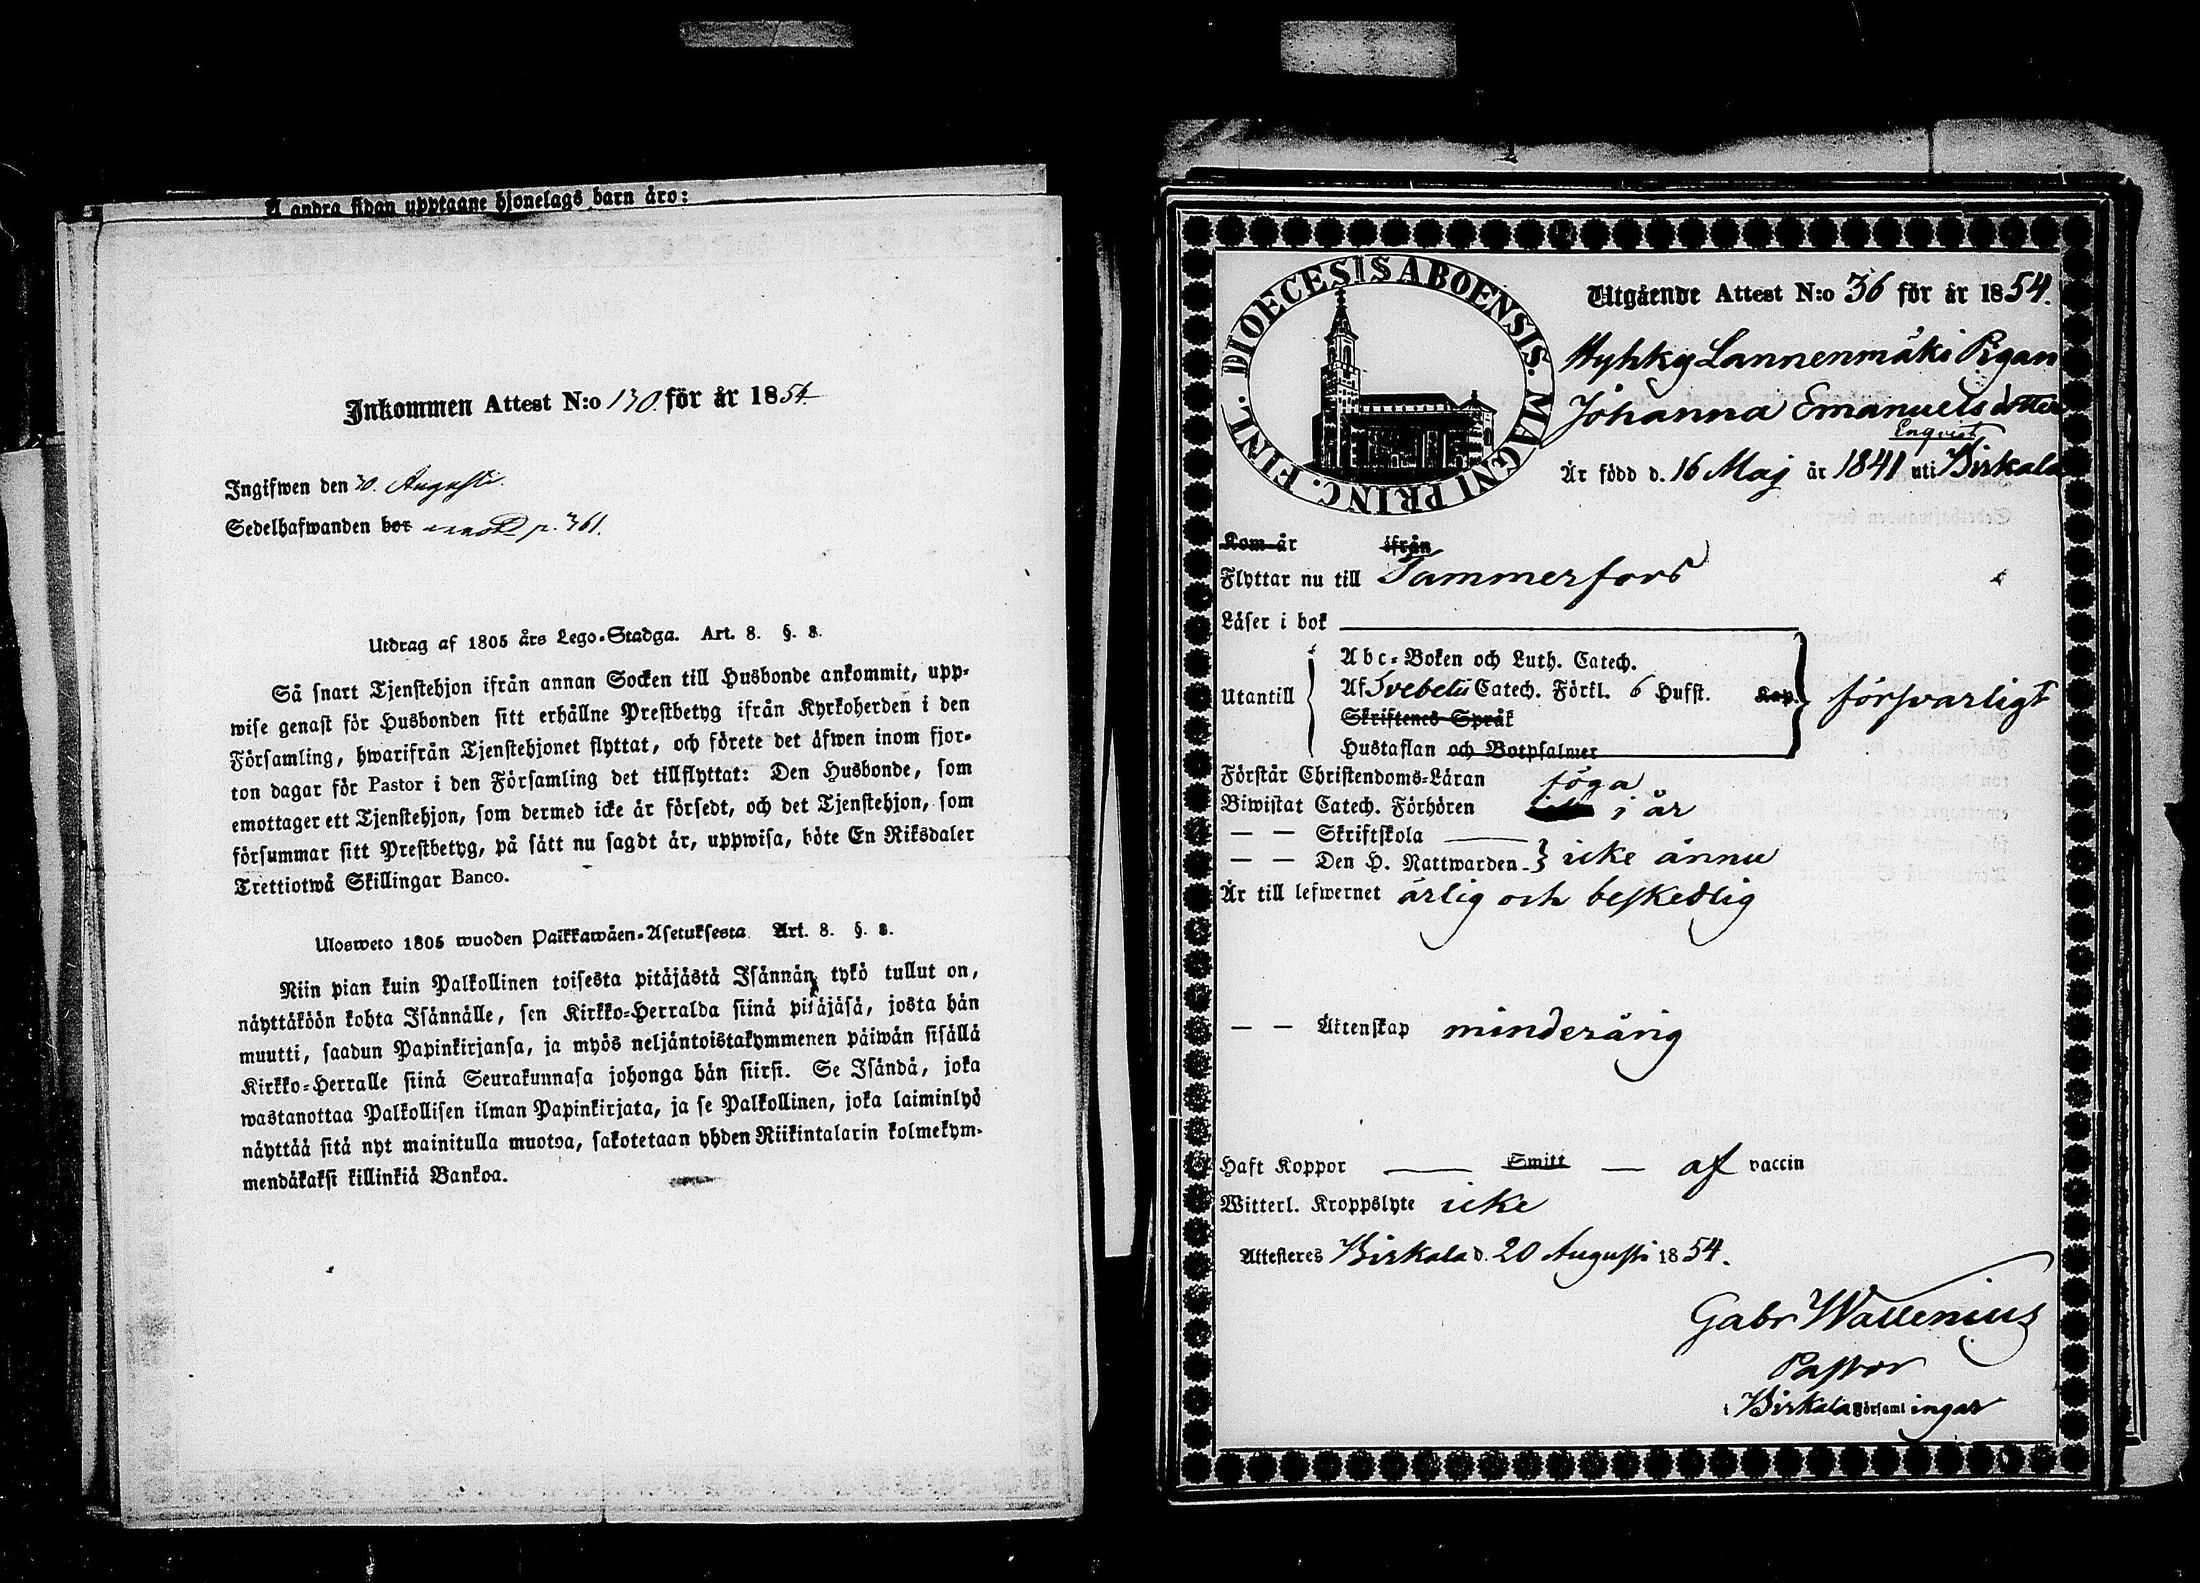 Å andra sidan upptagne hjonelags barn äro:
Inkommen Attest N:o 130. för år 1854.
Ingifwen den 30. Augusti.
Sedelhafwanden bor p. 361.
Utdrag af 1805 års Lego-Stadga. Art. 8. §. 8.
Så snart Tjenstehjon ifrån annan Socken till Husbonde ankommit, upp-
wise genast för Husbonden sitt erhållne Prestbetyg ifrån Kyrkoherden i den
Församling, hwarifrån Tjenstehjonet flyttat, och förete det äfwen inom fjor-
ton dagar för Pastor i den Församling det tillflyttat: Den Husbonde, som
emottager ett Tjenstehjon, som dermed icke är försedt, och det Tjenstehjon, som
försummar sitt Prestbetyg, på sätt nu sagdt är, uppwisa, böte En Riksdaler
Trettiotwå Skillingar Banco.
Ulosweto 1805 wuoden Palkkawäen-Asetuksesta Art. 8. §. 8.
Niin pian kuin Palkollinen toisesta pitäjästä Isännän tykö tullut on,
näyttäköön kohta Isännälle, sen Kirkko-Herralda siinä pitäjäsä, josta hän
muutti, saadun Papinkirjansa, ja myös neljäntoistakymmenen päiwän sisällä
Kirkko-Herralle siinä Seurakunnasa johonga hän siirsi. Se Isändä, joka
wastanottaa Palkollisen ilman Papinkirjata, ja se Palkollinen, joka laiminlyö
näyttää sitä nyt mainitulla muotoa, sakotetaan yhden Riikintalarin kolmekym-
mendäkaksi killinkiä Bankoa.
DIOECESIS ABOENSIS. MAGNI PRINC. FINL.
Utgående Attest N:o 36 för år 1854.
Hyhky Lannenmäki Pigan
Johanna Emanuelsdotter
Enqvist
Är född d. 16 Maj år 1841 uti Birkala
Kom år ifrån
Flyttar nu till Tammerfors
Läser i bok
Utantill
Abc-Boken och Luth. Catech.
Af Svebelii Catech. Förkl. 6 Hufst. Kap. försvarligt
Skriftenes Språk
Hustaflan och Botpsalmer
Förstår Christendoms-Läran föga
Biwistat Catech. Förhören i år
— — Skriftskola
— — Den H. Nattwarden icke ännu
Är till lefwernet ärlig och beskedlig
— — Äktenskap minderårig
Haft Koppor — Smitt — af vaccin
Witterl. Kroppslyte icke
Attesteres Birkala d. 20 Augusti 1854.
Gabr Wallenius
Pastor
i Birkala Församlingar